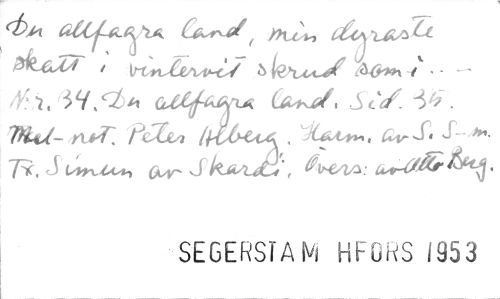 Du allfagra land, min dyraste
skatt i vintervit skrud som i .. –
N:r. 34. Du allfagra land. Sid. 35.
Mel-not. Peter Alberg. Harm. av S. S-m.
Tx. Simun av Skardi. Övers: av Otto Berg.
SEGERSTAM HFORS 1953